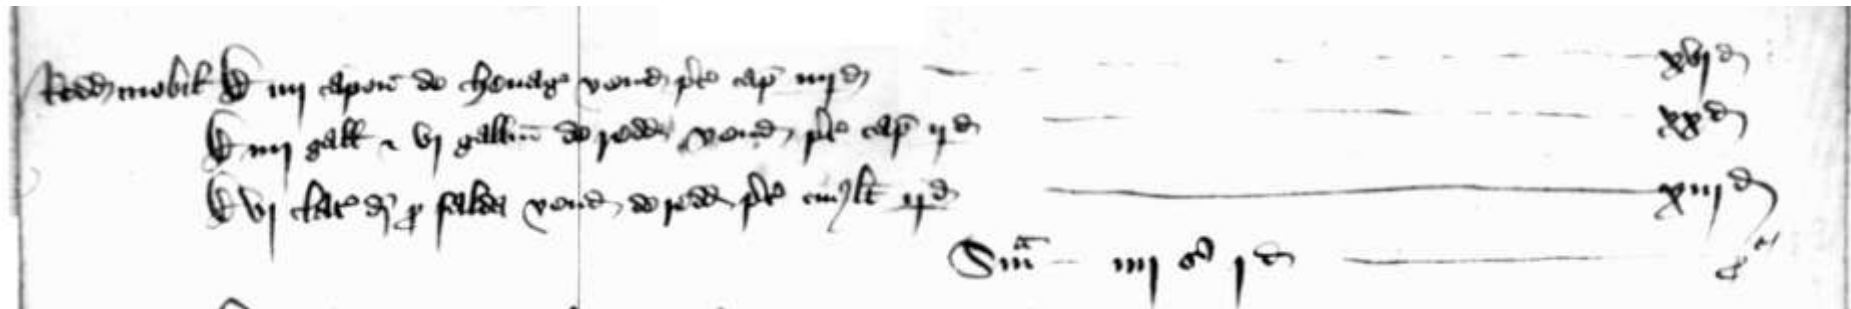 Redd mobil Et iiij capon de chevag vend pc cap iiij d xvj d
Et iiij gall & vj gallin de redd vend pc cap ij d xx d
Et vj clat di p falda vend de redd pc cujuslt ij d xiij d
Sma iiij s j d